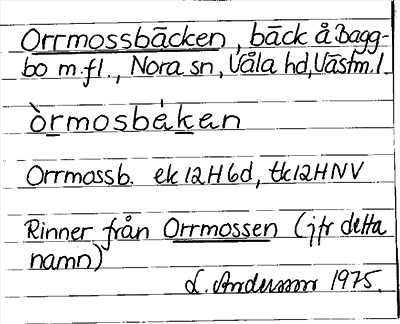 Orrmossbäcken, bäck å Bagg-
bo m.fl., Nora sn, Våla hd, Västm.l.
òrmosbékan
Orrmossb. ek 12H6d, tk12HNV
Rinner från Orrmossen (jfr detta
namn)
L. Andersson 1975.